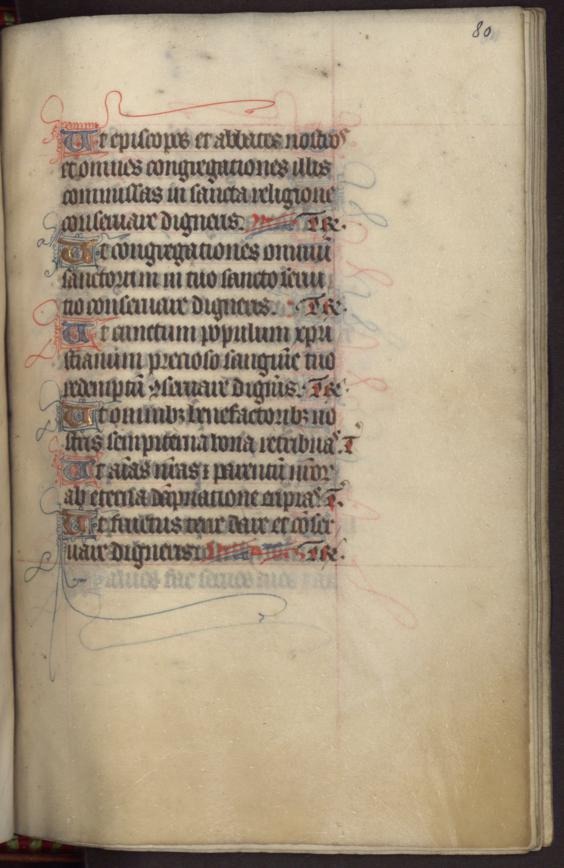 80
Ut episcopos et abbates nostros
et omnes congregationes illis
commissas in sancta religione
conseruare digneris. Te R.
Ut congregationes omniū
sanctorum in tuo sancto serui
tio conseruare digneris. Te R.
Ut cunctum populum xpri
stianum precioso sanguīe tuo
redemptū ɔseruare dignīs. Te R.
Ut omnibꝫ benefactoribꝫ no
stris sempiterna bona retribuas. T
Ut aīas nr̄as ⁊ parentū nr̄or
ab eterna dāpnatione eripias. T.
Ut fructus terre dare et cōser
uare digneris. Te R.